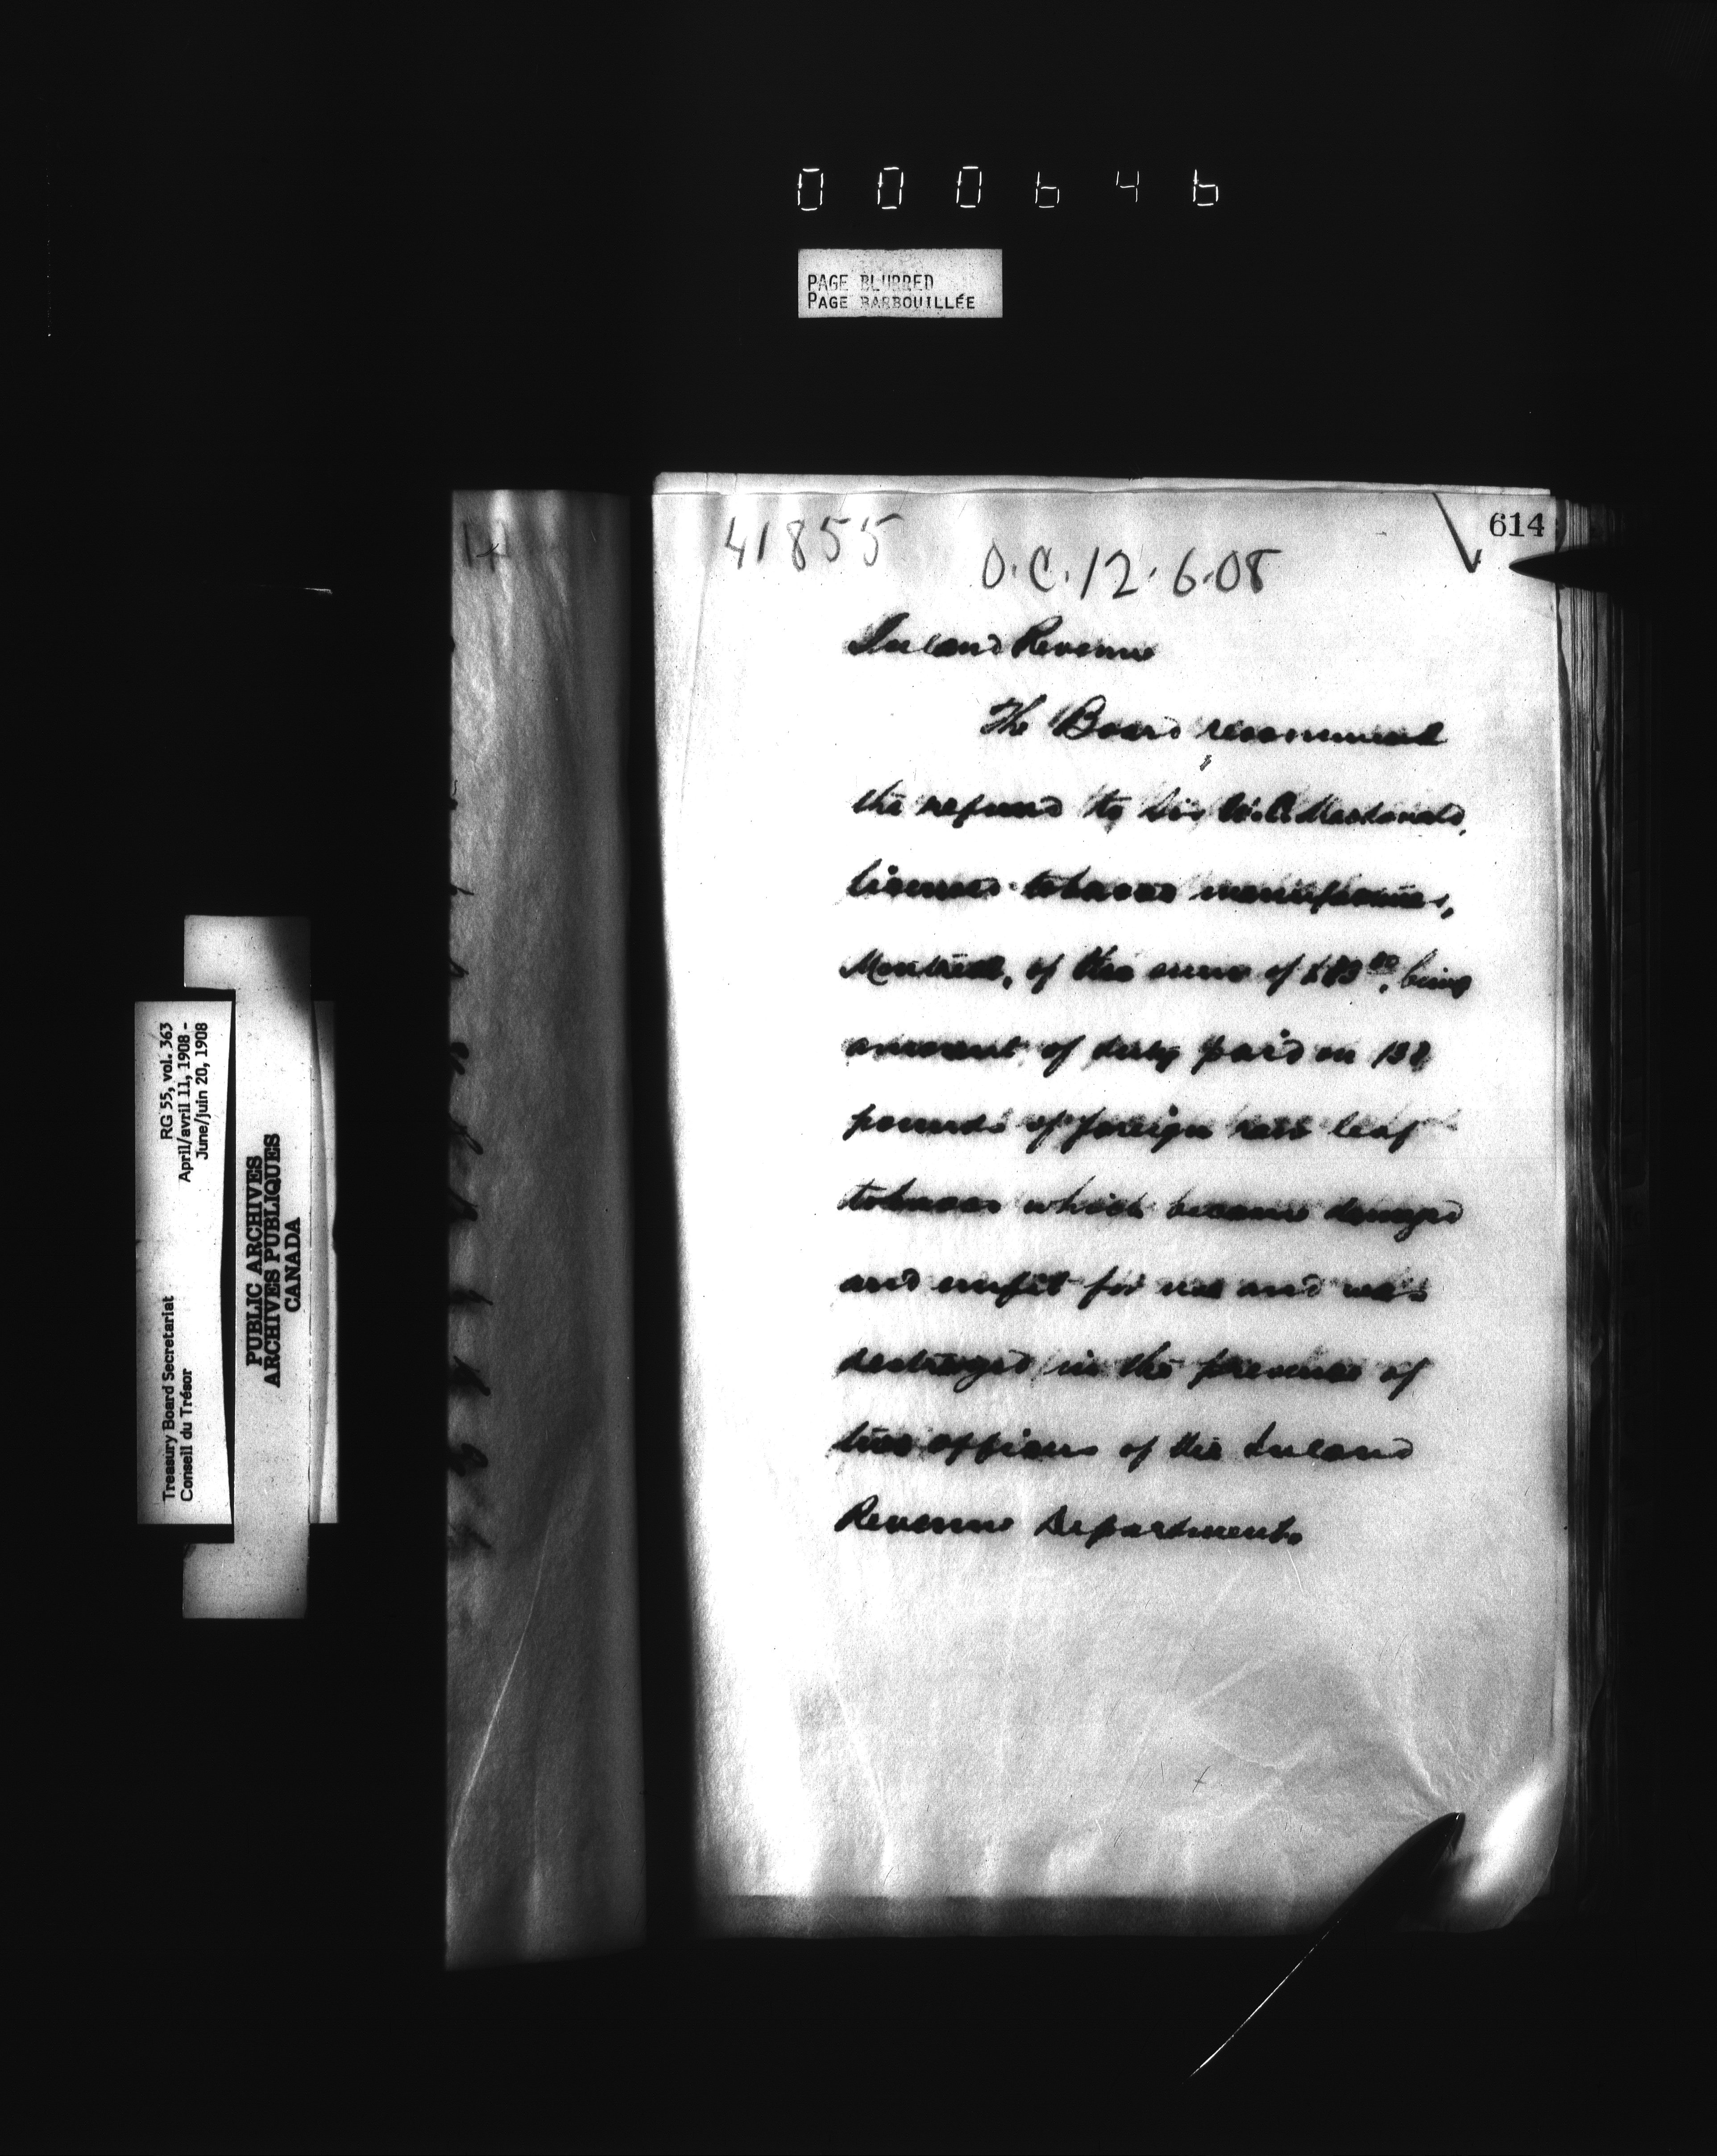 000646
PAGE BLURRED
PAGE BARBOUILLÉE
614
41855
O.C. 12.6.08
Inland Revenue
The Board recommend
the refund to Sir W.C. Macdonald,
licensed tobacco manufacturer,
Montreal, of the sum of being
amount of duty paid on
pounds of foreign raw leaf
tobacco which became damaged
and unfit for use and was
destroyed in the presence of
two officers of the Inland
Revenue Department.
RG 55, vol. 363
April/avril 11, 1908 -
June/juin 20, 1908
Treasury Board Secretariat
Conseil du Trésor
PUBLIC ARCHIVES
ARCHIVES PUBLIQUES
CANADA